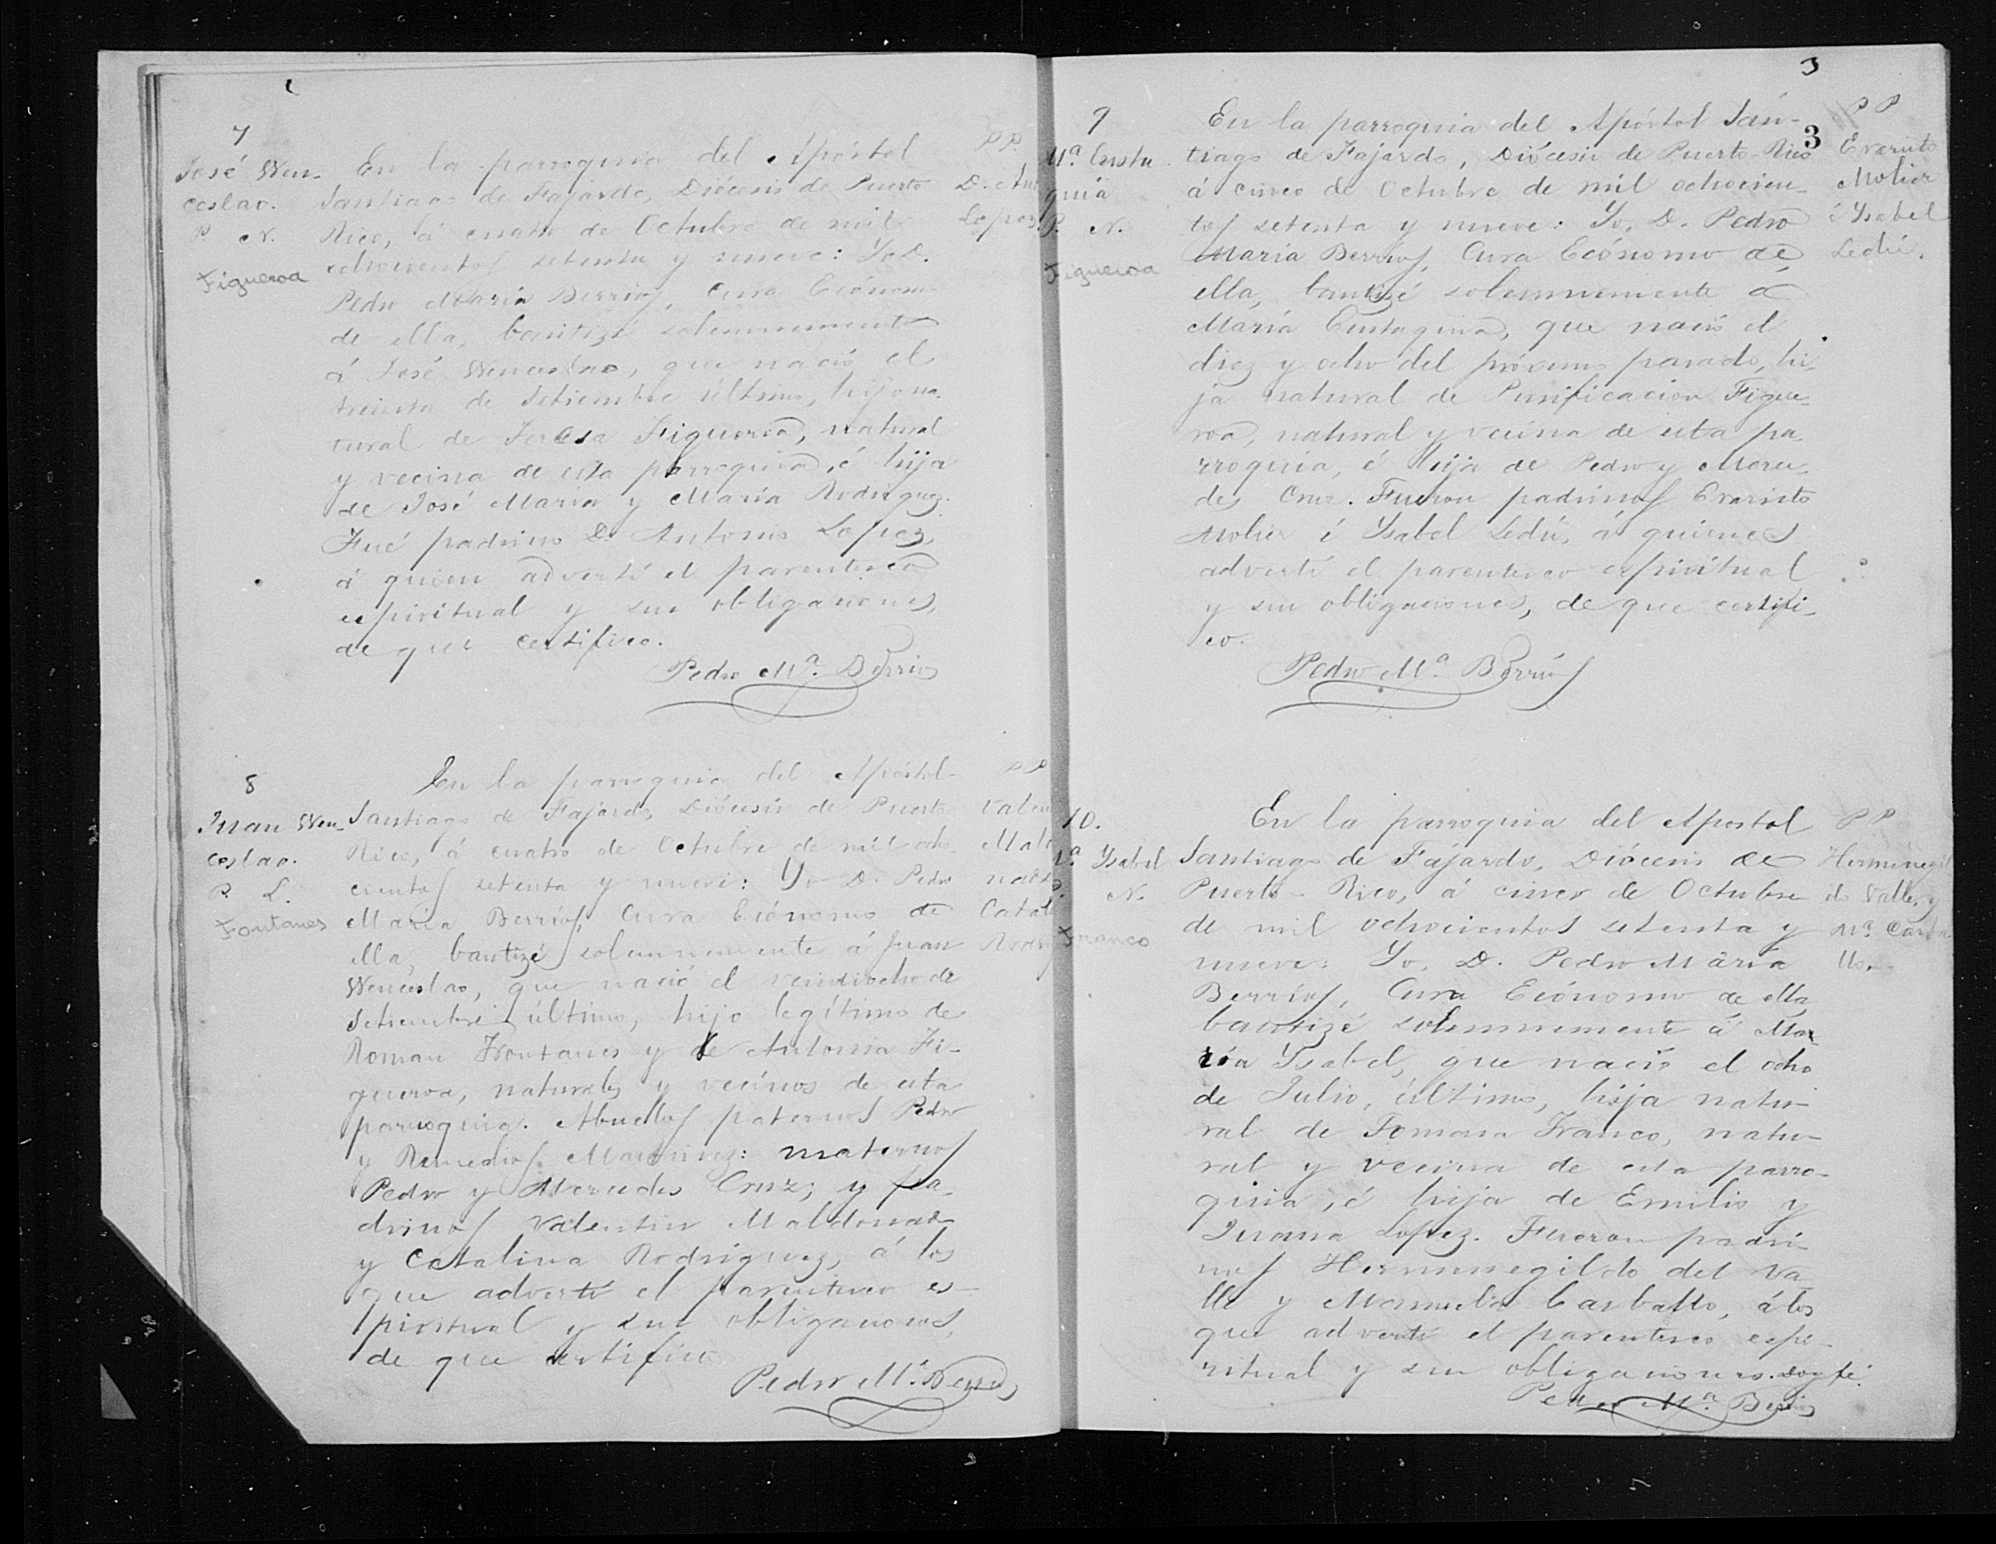 7
José Wen-
ceslao.
P. N.
Figueroa
En la parroquia del Apóstol
Santiago de Fajardo, Diócesis de Puerto
Rico, á cuatro de Octubre de mil
ochocientos setenta y nueve: Yo D.
Pedro María Berrios, Cura Ecónomo
de ella, bauticé solemnemente
á José Wenceslao, que nació el
treinta de Setiembre último, hijo na-
tural de Teresa Figueroa, natural
y vecina de esta parroquia, é hija
de José María y María Rodriguez.
Fué padrino D. Antonio Lopez,
á quien advertí el parentesco
espiritual y sus obligaciones,
de que certifico.
Pedro Mª. Berrios
P.P.
D. Ant
Lopez
8
Juan Wen-
ceslao.
P. L.
Fontanes
En la parroquia del Apóstol
Santiago de Fajardo, Diócesis de Puerto
Rico, á cuatro de Octubre de mil ocho-
cientos setenta y nueve: Yo D. Pedro
María Berríos, Cura Ecónomo de
ella, bauticé solemnemente á Juan
Wenceslao, que nació el veintiocho de
Setiembre último, hijo legítimo de
Roman Fontanes y de Antonia Fi-
gueroa, naturales y vecinos de esta
parroquia. Abuelos paternos Pedro
y Remedios Martinez: maternos
Pedro y Mercedes Cruz; y pa-
drinos Valentin Maldonado
y Catalina Rodriguez, á los
que advertí el parentesco es-
piritual y sus obligaciones,
de que certifico
Pedro Mª. Berrios
P P
Valen
Maldo
nado
Catal
Rodri
3
3
9
Mª. Eusta
quia
P. N.
Figueroa
En la parroquia del Apóstol San-
tiago de Fajardo, Diócesis de Puerto Rico
á cinco de Octubre de mil ochocien-
tos setenta y nueve: Yo, D. Pedro
María Berríos, Cura Ecónomo de
ella, bauticé solemnemente á
María Eustaquia, que nació el
diez y ocho del próximo pasado, hi-
ja natural de Purificacion Figue-
roa, natural y vecina de esta pa-
rroquia, é hija de Pedro y Merce-
des Cruz. Fueron padrinos Evaristo
Molier é Ysabel Ledú, á quienes
advertí el parentesco espiritual
y sus obligaciones, de que certifi-
co.
Pedro Mª. Berríos
P P
Evaristo
Molier
é Ysabel
Ledú.
10.
Mª. Ysabel
N.
Franco
En la parroquia del Apostol
Santiago de Fajardo, Diócesis de
Puerto-Rico, á cinco de Octubre
de mil ochocientos setenta y
nueve: Yo, D. Pedro María
Berríos, Cura Ecónomo de ella
bauticé solemnemente á Ma-
ría Ysabel, que nació el ocho
de Julio, último, hija natu-
ral de Tomasa Franco, natu-
ral y vecina de esta parro-
quia, é hija de Emilio y
Juana Lopez. Fueron padri-
nos Hermenegildo del Va-
lle y Manuela Carballo, á los
que advertí el parentesco espi-
ritual y sus obligaciones. doy fé.
Pedro Mª. Berrios
P P
Hermenegil
do Valle, y
Mª. Carba
llo.